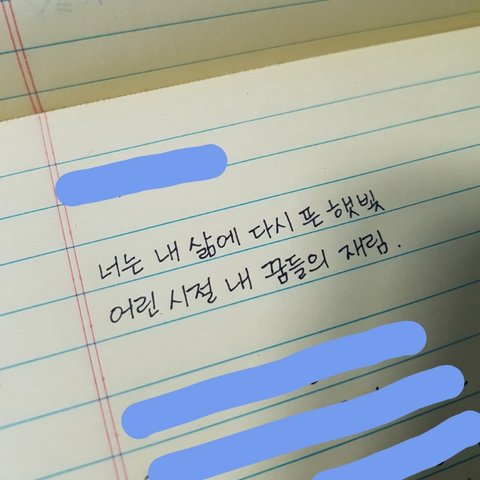 너는 내 삶에 다시 뜬 햇빛
어린 시절 내 꿈들의 재림.